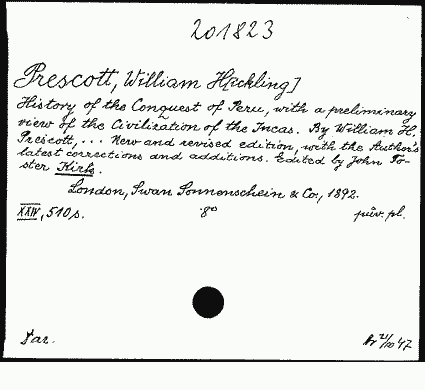 201823
Prescott, William H[ickling]
History of the Conquest of Peru, with a preliminary
view of the Civilization of the Incas. By William H.
Prescott, ... New and revised edition, with the Author's
latest corrections and additions. Edited by John Fo-
ster Kirk.
London, Swan Sonnenschein & Co., 1892.
XXIV, 510 s. 8° pův. pl.
Dar. 21/10 47